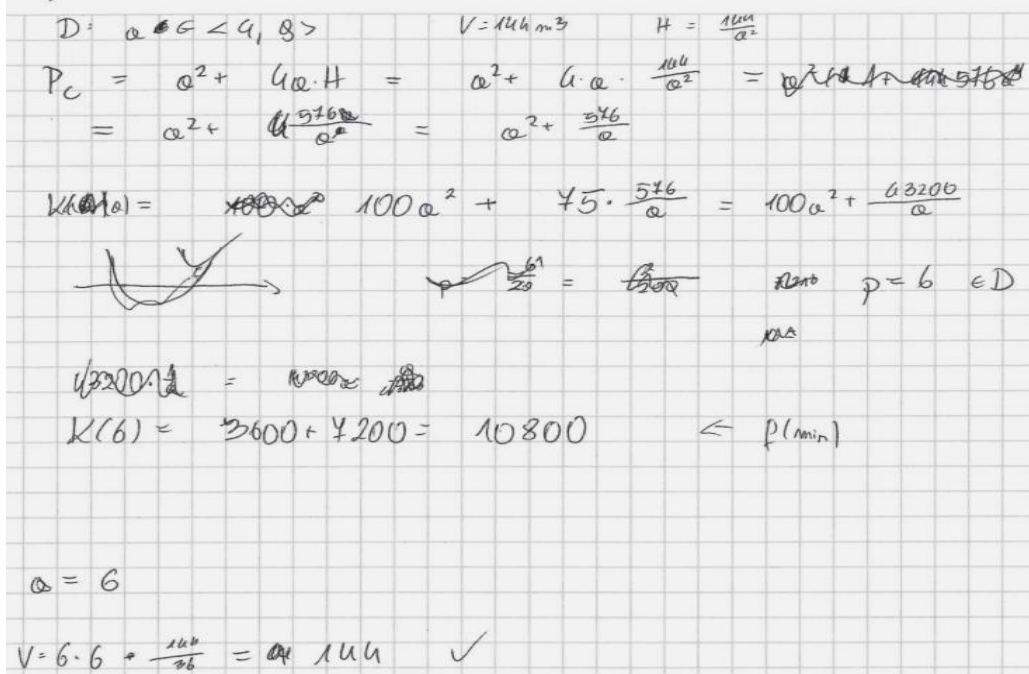 D: a ∈ <4, 8> V = 144 m3 H = 144/a²
P_c = a² + 4a·H = a² + 4·a·144/a² =
= a² + 576/a = a² + 576/a
K(a) = 100a² + 75·576/a = 100a² + 43200/a
p = 6 ∈ D
K(6) = 3600 + 7200 = 10800 ← f(min)
a = 6
V = 6·6·144/36 = 144 ✓